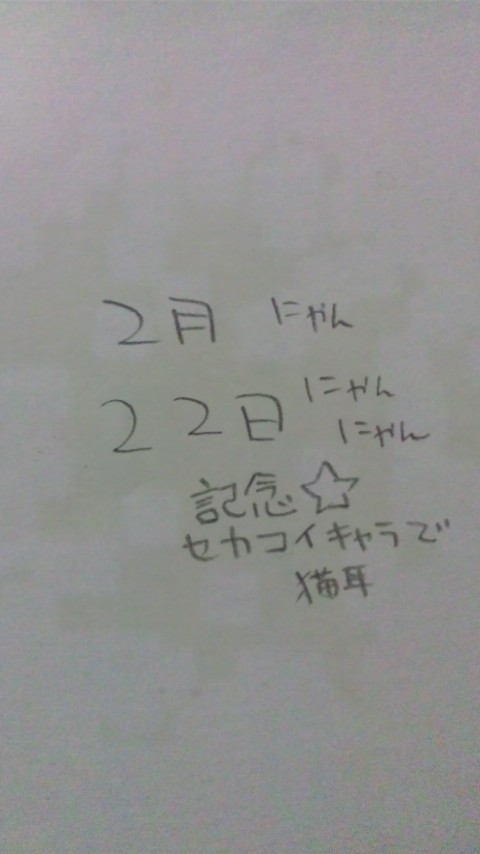 2月 にゃん
22日 にゃん
にゃん
記念☆
セカコイキャラで
猫耳